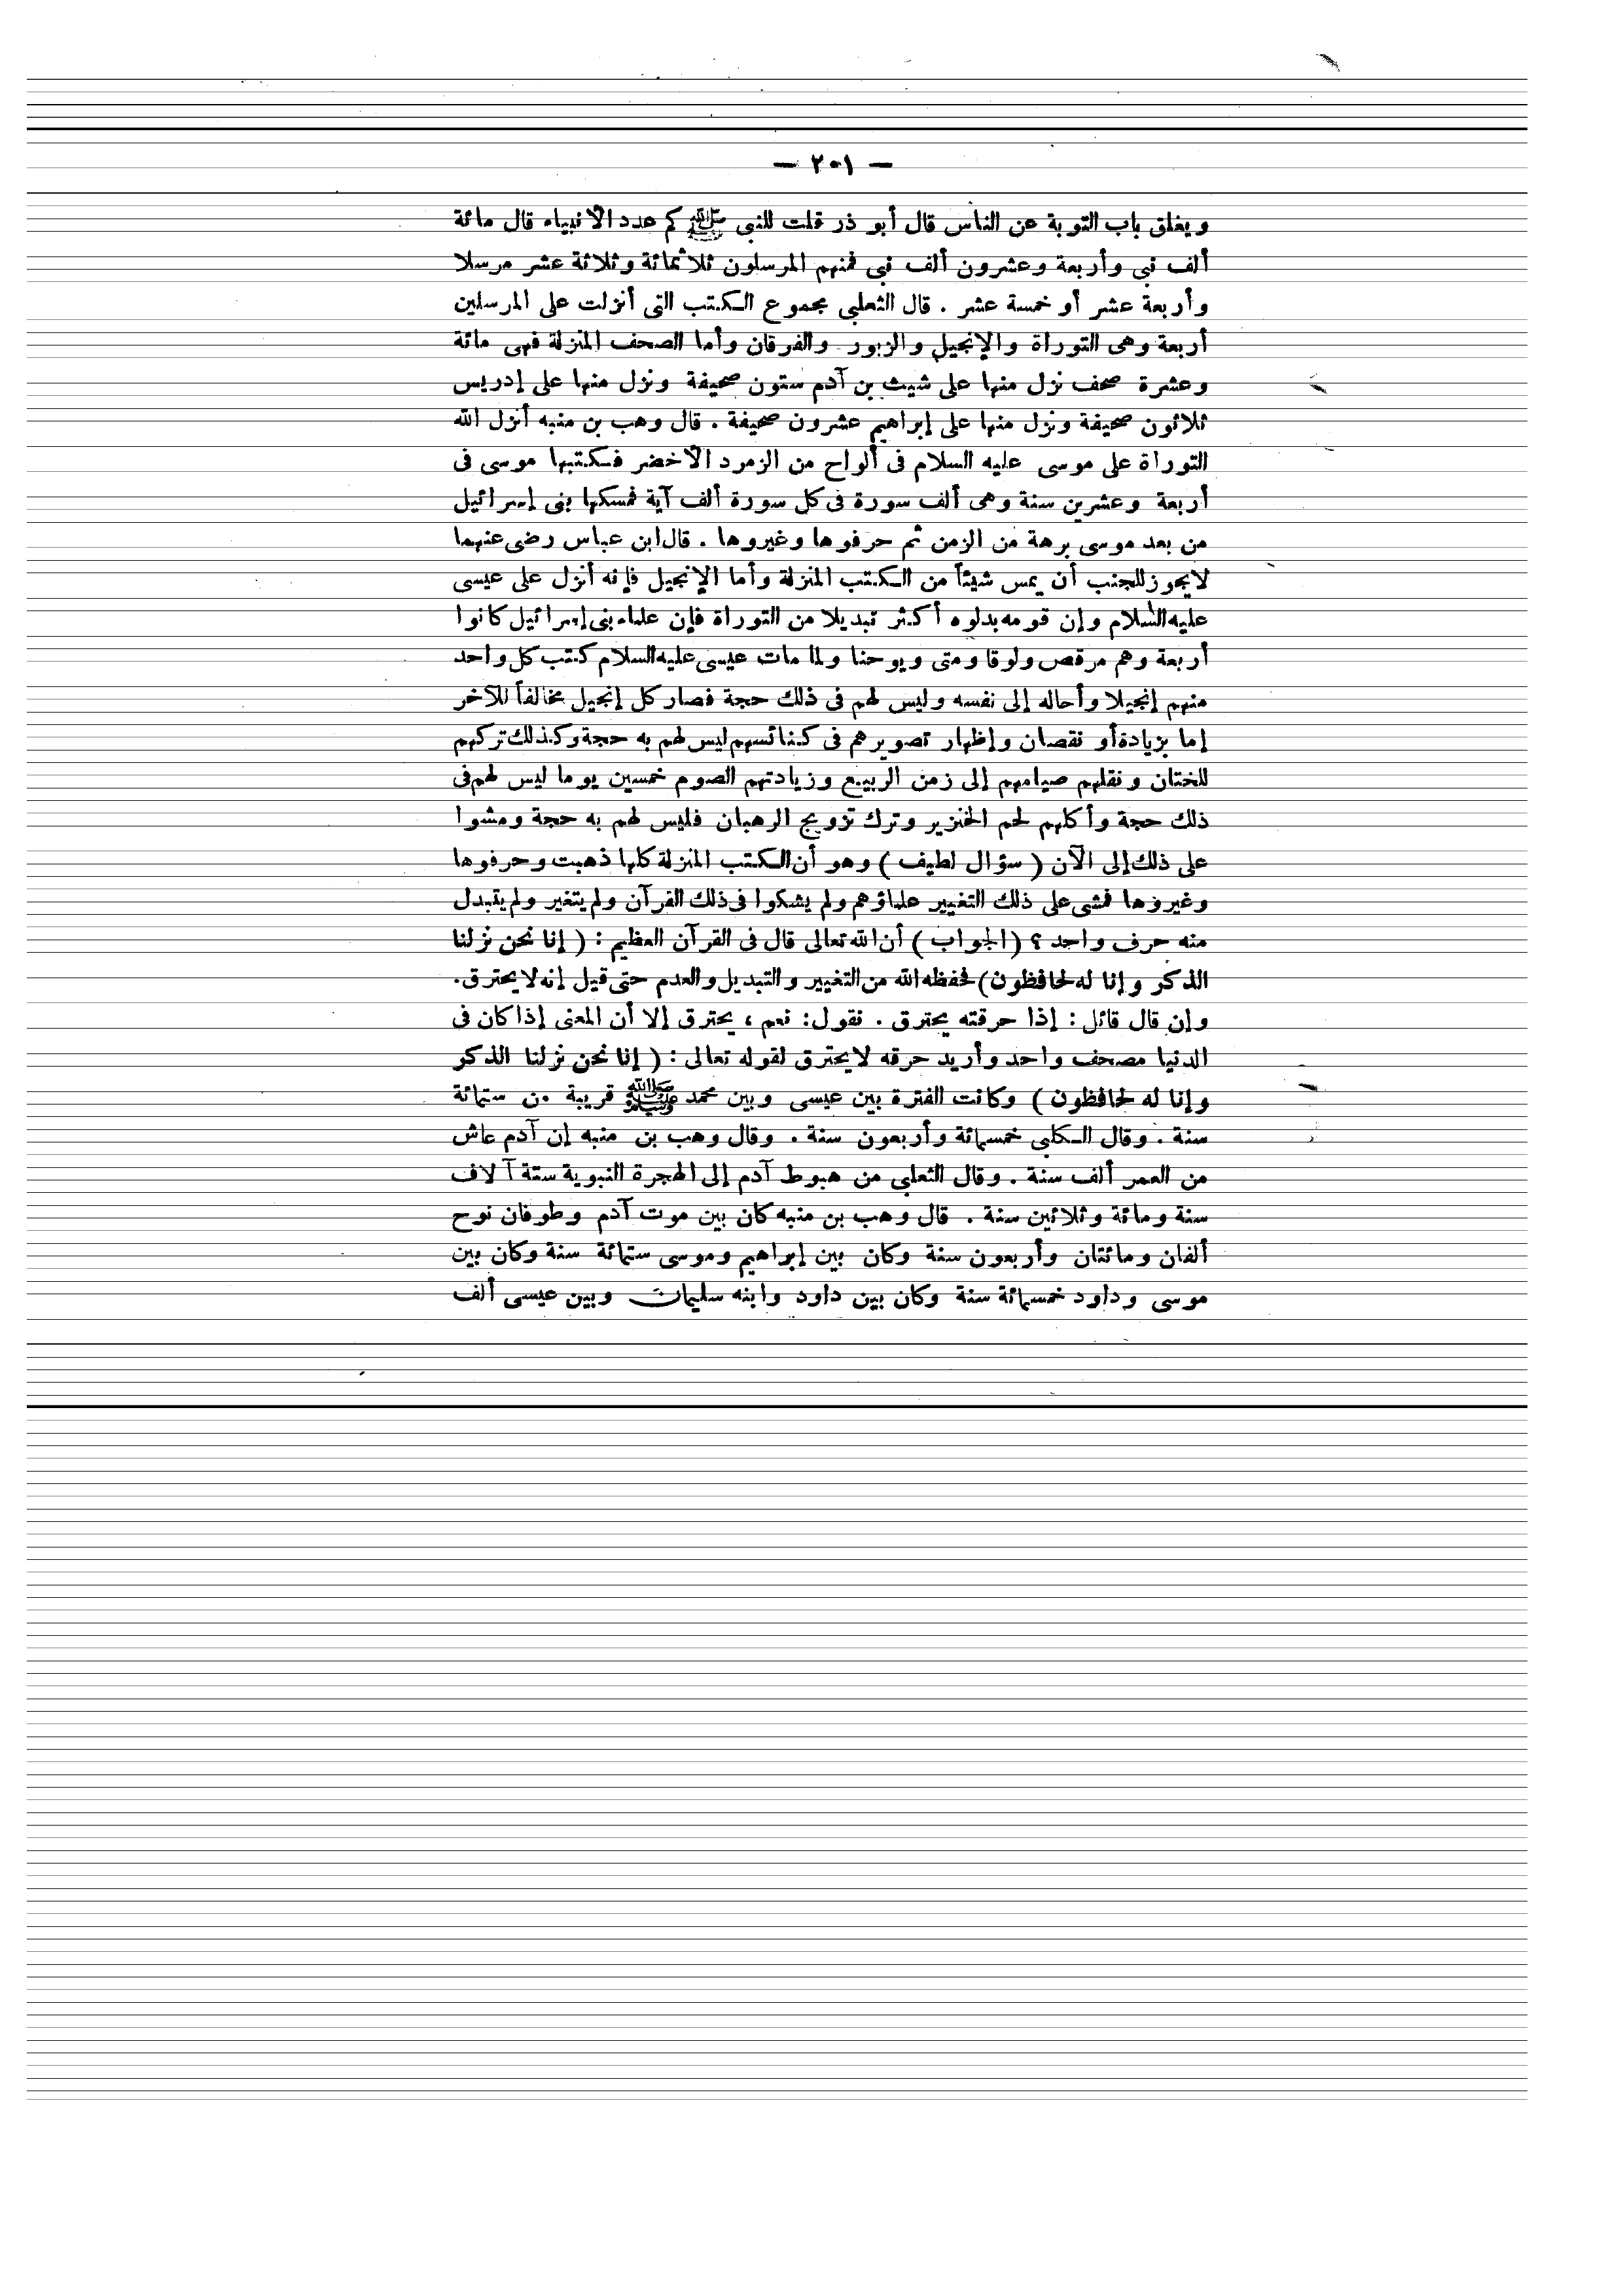 — ٢٠١ —
ويغلق باب التوبة عن الناس قال أبو ذر قلت للنبي ﷺ كم عدد الأنبياء قال مائة
ألف نبي وأربعة وعشرون ألف نبي فمنهم المرسلون ثلاثمائة وثلاثة عشر مرسلا
وأربعة عشر أو خمسة عشر . قال الثعلبي مجموع الكتب التى أنزلت على المرسلين
أربعة وهى التوراة والإنجيل والزبور والفرقان وأما الصحف المنزلة فهى مائة
وعشرة صحف نزل منها على شيث بن آدم ستون صحيفة ونزل منها على إدريس
ثلاثون صحيفة ونزل منها على إبراهيم عشرون صحيفة . قال وهب بن منبه أنزل الله
التوراة على موسى عليه السلام فى ألواح من الزمرد الأخضر فكتبها موسى فى
أربعة وعشرين سنة وهى ألف سورة فى كل سورة ألف آية فمسكها بنى إسرائيل
من بعد موسى برهة من الزمن ثم حرفوها وغيروها . قال ابن عباس رضى عنهما
لا يجوز للجنب أن يمس شيئاً من الكتب المنزلة وأما الإنجيل فإنه أنزل على عيسى
عليه السلام وإن قومه بدلوه أكثر تبديلا من التوراة فإن علماء بنى إسرائيل كانوا
أربعة وهم مرقص ولوقا ومتى ويوحنا ولما مات عيسى عليه السلام كتب كل واحد
منهم إنجيلا وأحاله إلى نفسه وليس لهم فى ذلك حجة فصار كل إنجيل مخالفاً للآخر
إما بزيادة أو نقصان وإظهار تصويرهم فى كنائسهم ليس لهم به حجة وكذلك تركهم
للختان ونقلهم صيامهم إلى زمن الربيع وزيادتهم الصوم خمسين يوما ليس لهم فى
ذلك حجة وأكلهم لحم الخنزير وترك تزويج الرهبان فليس لهم به حجة ومشوا
على ذلك إلى الآن ( سؤال لطيف ) وهو أن الكتب المنزلة كلها ذهبت وحرفوها
وغيروها فمشى على ذلك التغيير علماؤهم ولم يشكوا فى ذلك القرآن ولم يتغير ولم يتبدل
منه حرف واحد ؟ ( الجواب ) أن الله تعالى قال فى القرآن العظيم : ( إنا نحن نزلنا
الذكر وإنا له لحافظون ) فحفظه الله من التغيير والتبديل والعدم حتى قيل إنه لا يحترق .
وإن قال قائل : إذا حرقته يحترق . نقول : نعم ، يحترق إلا أن المعنى إذا كان فى
الدنيا مصحف واحد وأريد حرقه لا يحترق لقوله تعالى : ( إنا نحن نزلنا الذكر
وإنا له لحافظون ) وكانت الفترة بين عيسى وبين محمد ﷺ قريبة من ستمائة
سنة . وقال الكلبى خمسمائة وأربعون سنة . وقال وهب بن منبه إن آدم عاش
من العمر ألف سنة . وقال الثعلبى من هبوط آدم إلى الهجرة النبوية ستة آلاف
سنة ومائة وثلاثين سنة . قال وهب بن منبه كان بين موت آدم وطوفان نوح
ألفان ومائتان وأربعون سنة وكان بين إبراهيم وموسى ستمائة سنة وكان بين
موسى وداود خمسمائة سنة وكان بين داود وابنه سليمان وبين عيسى ألف